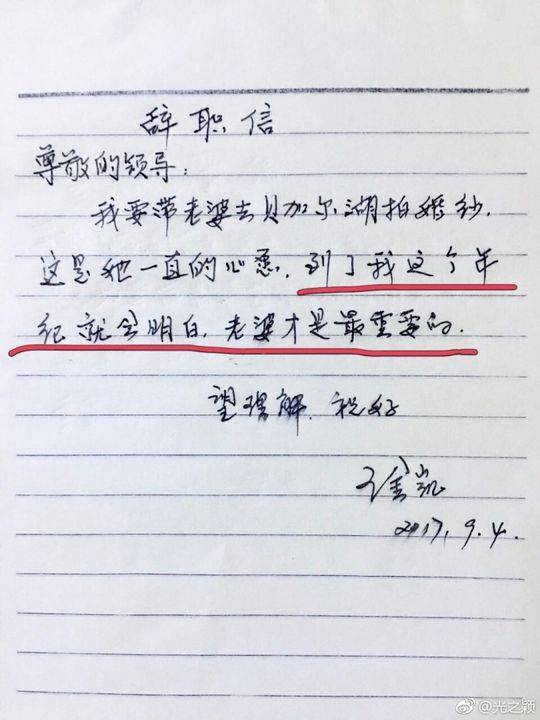 辞职信
尊敬的领导：
我要带老婆去贝加尔湖拍婚纱.
这是她一直的心愿.到了我这个年
纪就会明白.老婆才是最重要的.
望理解.祝好
凯
2017.9.4.
@光之颖